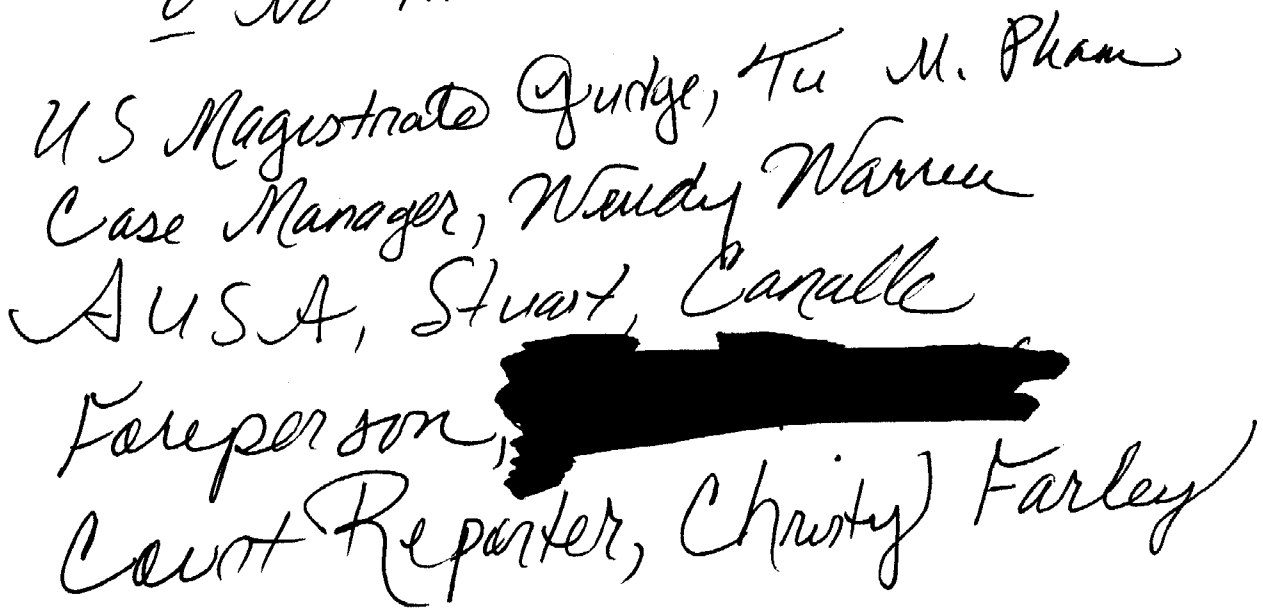 US Magistrate Judge, Tu M. Pham
Case Manager, Wendy Warren
AUSA, Stuart, Canalle
Foreperson,
Court Reporter, Christy Farley